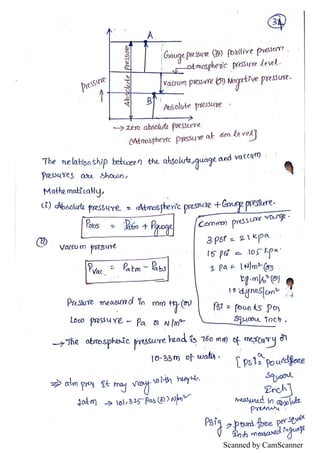 34
A
Gauge pressure (or) positive pressure.
atmospheric pressure level.
Pressure
Absolute pressure
vaccum pressure (or) Negative pressure.
B
Absolute pressure
→ zero absolute pressure
[Atmospheric pressure at sea level]
The relationship between the absolute, guage and vaccum
Pressures are shown,
Mathematically,
(i) Absolute pressure = Atmospheric pressure + Gauge pressure.
Pabs = Patm + Pguage
Common pressure range.
3 PSI = 21 kpa
15 psi = 105 kpa
1 Pa = 1 N/m² (or)
kg.m/s² (or)
10 dynes/cm²
PSI = Pounds per
square inch.
(ii) Vaccum pressure
Pvac = Patm - Pabs
Pressure measured in mm Hg (or)
Low pressure - Pa or N/m²
→ The atmospheric pressure head is 760 mm of mercury or
10.33m of water.
[PSIa = Pound force
Square
Inch]
measured in absolute
pressure
⇒ atm pres It may vary with height.
1 atm → 101.325 Pas (or) N/m²
Psig → pound force per square
inch measured in guage
Scanned by CamScanner